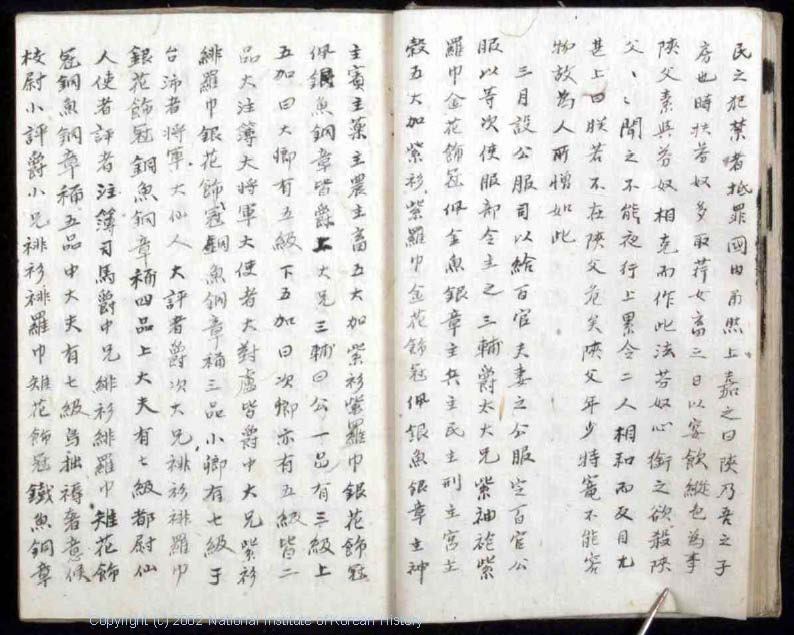 民之犯禁者抵罪國由而熙上嘉之曰陜乃吾之子
房也時扶芬奴多取荇女畜之日以宴飮縱色為事
陜父素與芬奴相克而作此法芬奴心銜之欲殺陜
父〻聞之不能夜行上累令二人相和而反目尤
甚上曰朕若不在陜父危矣陜父年少恃寵不能容
物故為人所憎如此
三月設公服司以給百官夫妻之公服定百官公
服以等次使服部令主之三輔爵太大兄紫袖袍紫
羅巾金花飾冠佩金魚銀章主兵主民主刑主宮主
穀五大加紫衫紫羅巾金花飾冠佩銀魚銀章主神
主賓主藥主農主畜五大加紫衫紫羅巾銀花飾冠
佩銀魚銅章皆爵上大兄三輔曰公一品有三級上
五加曰大卿有五級下五加曰次卿亦有五級皆二
品大注簿大將軍大使者大對盧皆爵中大兄紫衫
緋羅巾銀花飾冠銅魚銅章稱三品小卿有七級于
台沛者將軍大仙人大評者爵次大兄緋衫緋羅巾
銀花飾冠銅魚銅章稱四品上大夫有七級都尉仙
人使者評者注簿司馬爵中兄緋衫緋羅巾雉花飾
冠銅魚銅章稱五品中大夫有七級烏拙褥奢意候
校尉小評爵小兄緋衫緋羅巾雉花飾冠鐵魚銅章
Copyright (c) 2002 National Institute of Korean History